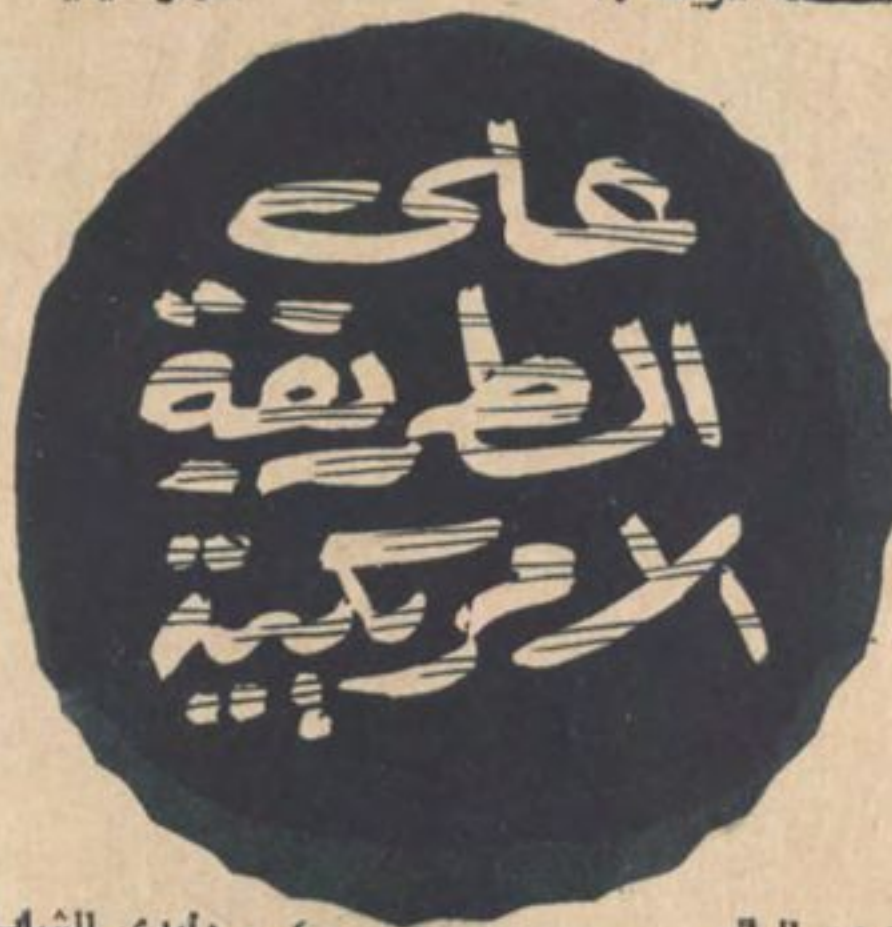 على
الطريقة
الامريكية